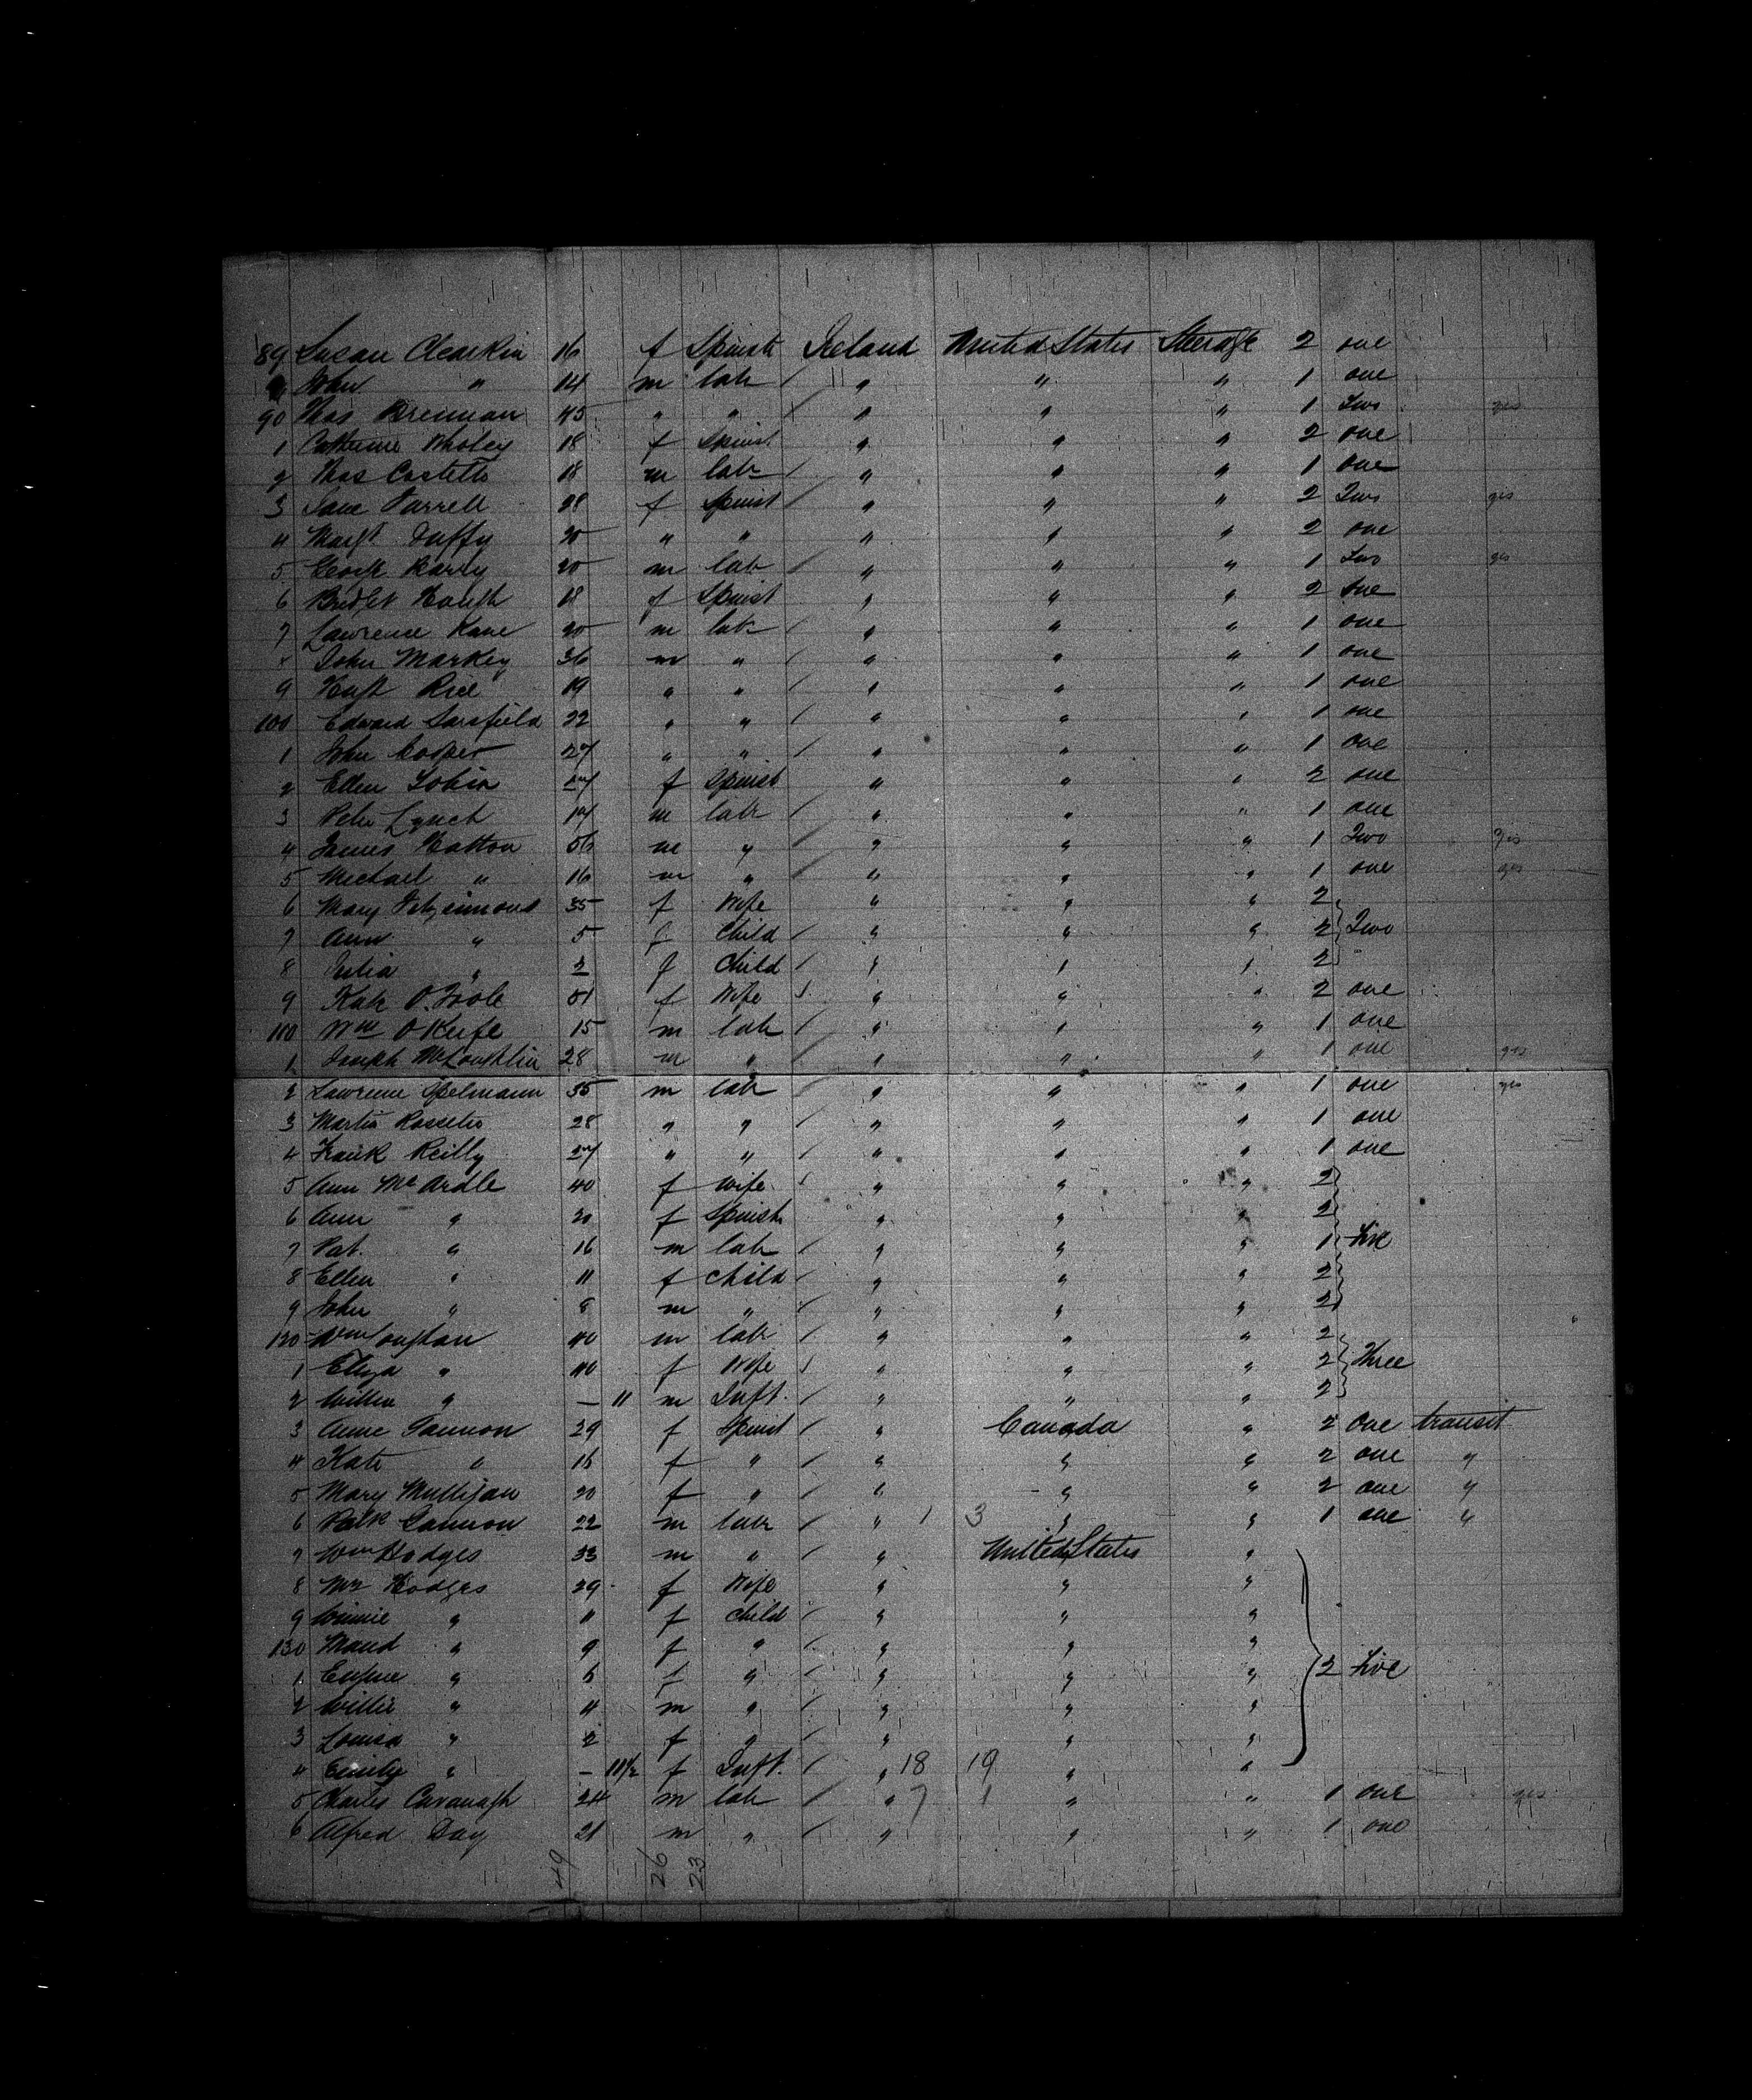 89 Susan Clearkin 16 f Spinstr Ireland United States Steerage 2 one
John " 14 m lab / " " " 1 one
90 Thos Brennan 45 " " / " " " 1 Two yes
1 Catherine Wholey 18 f Spinst " " " 2 one
2 Thos Costello 18 m lab / " " " 1 one
3 Jane Farrell 28 f Spinst / " " " 2 Two yes
4 Margt Duffy 20 " " " " " 2 one
5 20 m lab / " " " 1 Two yes
6 Bridget Hough 18 f Spinst " " " 2 one
7 Lawrence Kane 20 m lab / " " " 1 one
John Markey 36 m " / " " " 1 one
9 Hugh Rice 19 " " / " " " 1 one
100 Edward Sarsfield 22 " " / " " " 1 one
1 John Cooper 27 " " / " " " 1 one
2 Ellen Tobin 27 f Spinst " " " 2 one
3 Peter Lynch 17 m lab / " " " 1 one
4 James Hatton 56 m " / " " " 1 Two yes
5 Michael " 16 m " / " " " 1 one yes
6 Mary Fitzsimons 35 f Wife " " " 2
7 Ann " 5 f Child / " " " 2 Two
8 Julia " 2 f Child / " " " 2
9 Kate O'Toole 51 f Wife " " " 2 one
110 Wm O'Keefe 15 m lab / " " " 1 one
1 Joseph McLoughlin 28 m " / " " " 1 one yes
2 Lawrence Spelmann 35 m lab / " " " 1 one yes
3 Martin 28 " " / " " " 1 one
4 Frank Reilly 27 " " / " " " 1 one
5 Ann McArdle 40 f wife " " " 2
6 Ann " 20 f Spinstr " " " 2
7 Pat. " 16 m lab / " " " 1 five
8 Ellen " 11 f child / " " " 2
9 John " 8 m " / " " " 2
120 Wm 40 m lab / " " " 2
1 Eliza " 40 f Wife " " " 2 Three
2 Willm " — 11 m Inft. / " " " 2
3 Anne Gannon 29 f Spinst / " Canada " 2 one transit
4 Kate " 16 f " / " " " 2 one "
5 Mary Mulligan 20 f " / " " " 2 one "
6 Patk Gannon 22 m lab / " 1 3 " " 1 one "
7 Wm Hodges 33 m " / " United States "
8 Mrs Hodges 29 f Wife " " "
9 Winnie " 11 f child / " " "
130 Maud " 9 f " / " " "
1 " 6 f " / " " " 2 five
2 Willie " 4 m " / " " "
3 Louisa " 2 f " / " " "
4 Emily " — 11½ f Inft. / " 18 19 " "
5 Charles Cavanagh 24 m lab / " 7 1 " " 1 one yes
6 Alfred Day 21 m " / " " " 1 one
49 26 23